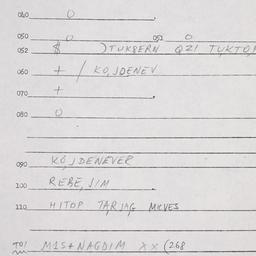 040 0
050 0 051 0
052 $ )TUKBERN QZI TUKTO
060 + / KO,JDENEV
070 +
080 0
090 KO,JDENEVER
100 REBE,JIM
110 HITOP TARJAG
TO! M1S+NAGDIM XX (268